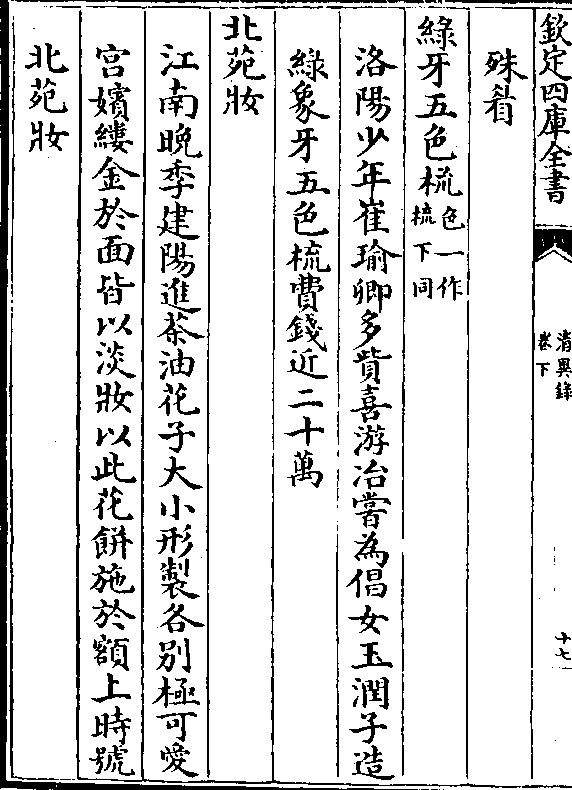 欽定四庫全書
清異錄
卷下
十七
殊
綠牙五色梳色一作梳下同
洛陽少年崔瑜卿多貲喜游冶嘗為倡女玉潤子造
綠象牙五色梳費錢近二十萬
北苑妝
江南晚季建陽進茶油花子大小形製各別極可愛
宮嬪縷金於面皆以淡妝以此花餅施於額上時號
北苑妝